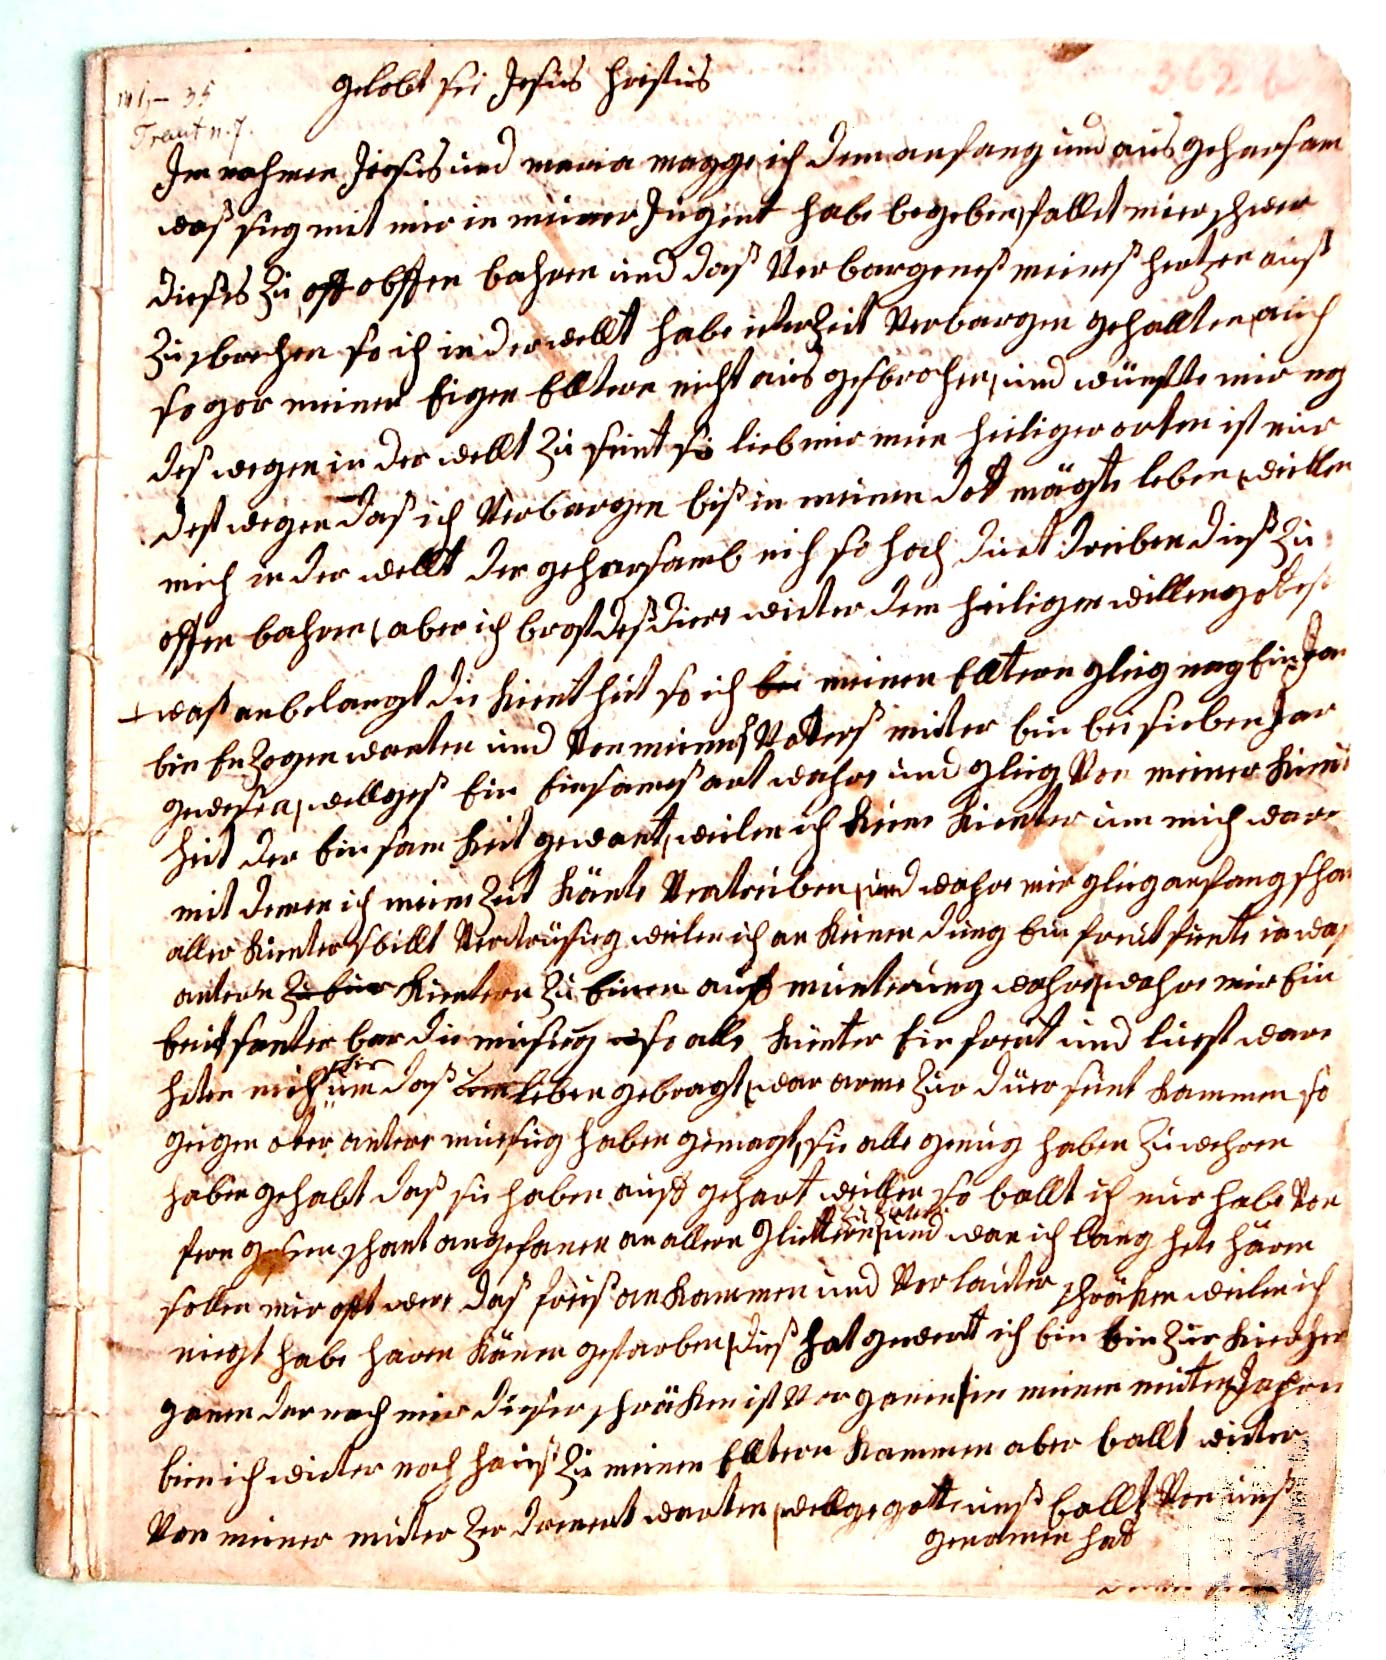 gelobt sei Jesus Christus
141,- 35
Treut n. 7.
Im nahmen Jiesus und maria magge ich dem anfang und aus gehorsam
was sieg mit mir in meiner Jugent habe begeben, fallet mier schwer
dieses zu off obffen bahren und das Verborgenes meines hertzen auß
zu sbrechen so ich in der wellt habe iederzeit Verborgen gehallten, auch
so gor meinen Eigen Elltern nicht aus gesbrochen, und wünste mir nog
des wegen in der wellt zu seint so lieb mir mein heiliger orten ist nur
dest wegen das ich Verborgen biß in meinen dott mögte leben, weillen
mich in der wellt der gehorsamb nich so hoch duet dreiben dieß zu
offen bahren, aber ich brostdestdiere wieter dem heiligen willen gottes
was anbelangt die Kientheit so ich bei meinen Elltern gleig nag Ein Jar
bin Enzogen worten und Von meines Votters mutter bin bei sieben Jar
gewesen, wellges Ein Einsames ort wahre und gleig Von meiner Kient
heit der Einsamkeit gewont, weilen ich keine Kienter um mich ware
mit denen ich meine Zeit könte Vertreiben, und wahre mir gleig anfang schan
aller Kienter sbillt Vertrüsieg weilen ich an keinen dieng Ein freut funte ia was
antern zu Einer Kientern zu Einen auff munterung wahre, wahre mir Ein
beit sonter bar die musieg so alle Kienter Ein freut und luest ware
heten mich schir um daß leben gebragt, war arme zur düer seint kammen so
geigen oter antere muesieg haben gemagt, sie alle genug haben zu wehren
haben gehabt das sie haben auff gehört weillen so ballt ich nur habe Von
fern gesen schant angefanen an allen glietern zu zitern und wan ich lang hete hären
sollen mir oft were das freis ankammen und Vor lauter schräken weilen ich
niegt habe hären können gestorben, dies hat gewert ich bin bin zur Kierchen
ganen dernach mir dieser schräken ist Vor ganen, in meinen neunten Jahren
bin ich wieter nach haus zu meinen Elltern kammen aber ballt wieter
Von meiner mutter zer drenent worten, wellge gott uns ballt Von uns
genomen hat